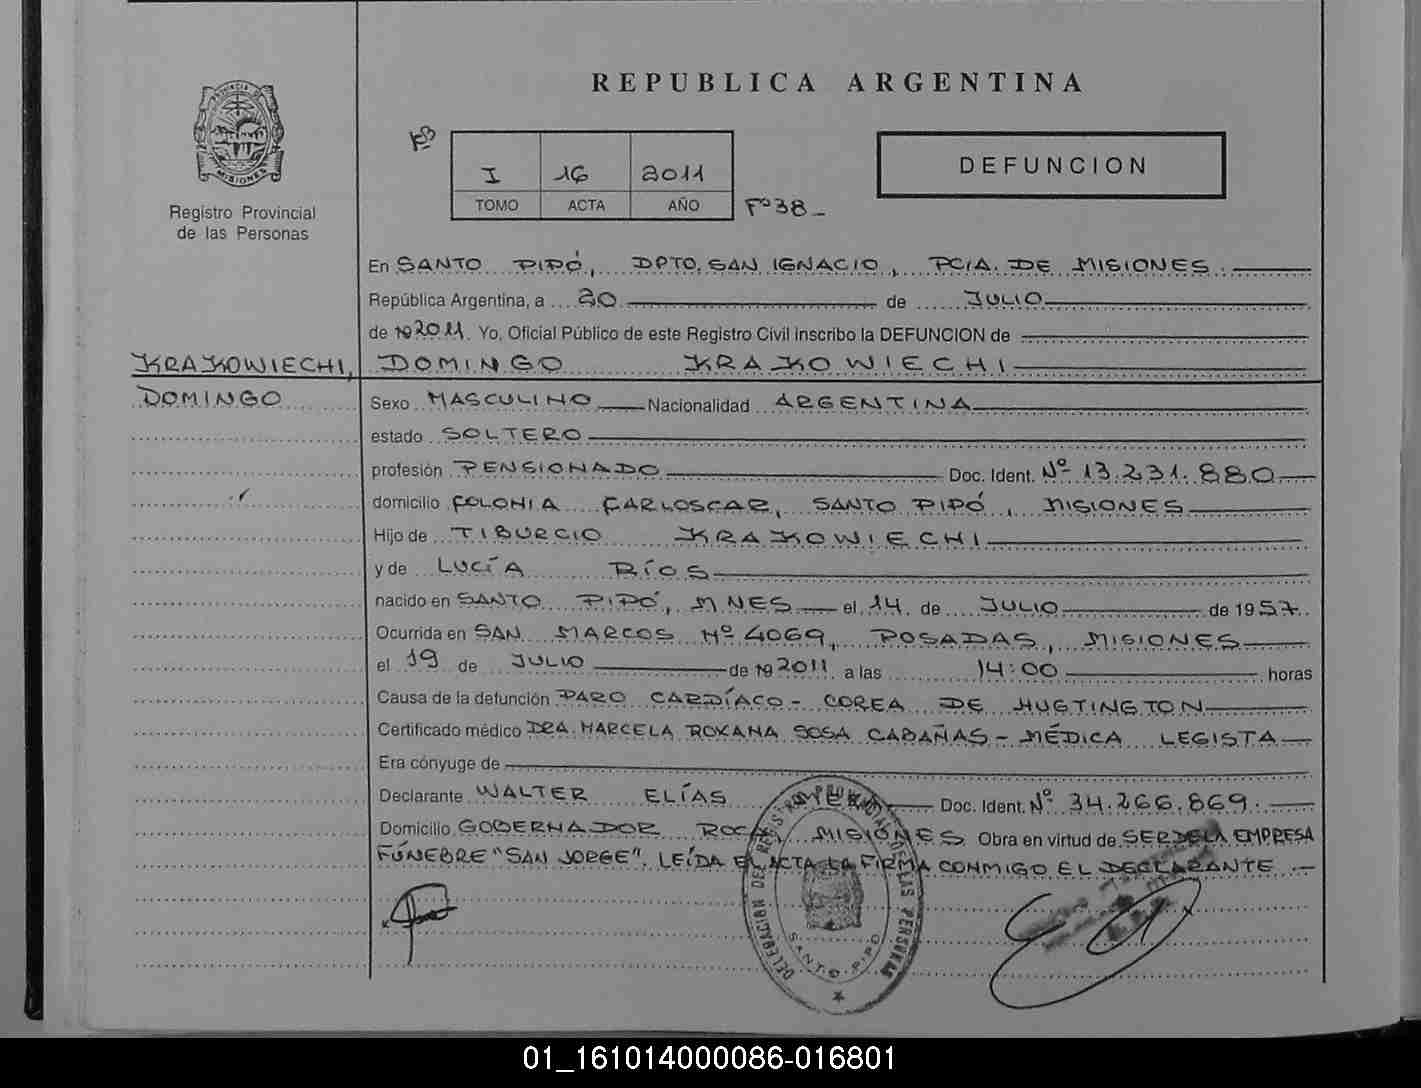 REPUBLICA ARGENTINA
PROVINCIA DE
MISIONES
Registro Provincial
de las Personas
I 16 2011
TOMO ACTA AÑO
Fº 38_
DEFUNCION
En SANTO PIPÓ, DPTO. SAN IGNACIO, PCIA. DE MISIONES.
República Argentina, a 20 de JULIO
de 19 2011. Yo, Oficial Público de este Registro Civil inscribo la DEFUNCION de
KRAKOWIECHI, DOMINGO KRAKOWIECHI
DOMINGO
Sexo MASCULINO Nacionalidad ARGENTINA
estado SOLTERO
profesión PENSIONADO Doc. Ident. Nº 13.231.880
domicilio COLONIA CARLOSCAR, SANTO PIPÓ, MISIONES
Hijo de TIBURCIO KRAKOWIECHI
y de LUCÍA RÍOS
nacido en SANTO PIPÓ, MNES el 14 de JULIO de 1957.
Ocurrida en SAN MARCOS Nº 4069, POSADAS, MISIONES
el 19 de JULIO de 19 2011 a las 14:00 horas
Causa de la defunción PARO CARDÍACO - COREA DE HUGTINGTON
Certificado médico DRA. MARCELA ROXANA SOSA CABAÑAS - MÉDICA LEGISTA
Era cónyuge de
Declarante WALTER ELÍAS Doc. Ident. Nº 34.266.869.
Domicilio GOBERNADOR ROCA, MISIONES Obra en virtud de SER DE LA EMPRESA
FÚNEBRE "SAN JORGE". LEÍDA EL ACTA LA FIRMA CONMIGO EL DECLARANTE.-
DELEGACION DEL REGISTRO PROVINCIAL DE LAS PERSONAS
SANTO PIPÓ
01_161014000086-016801